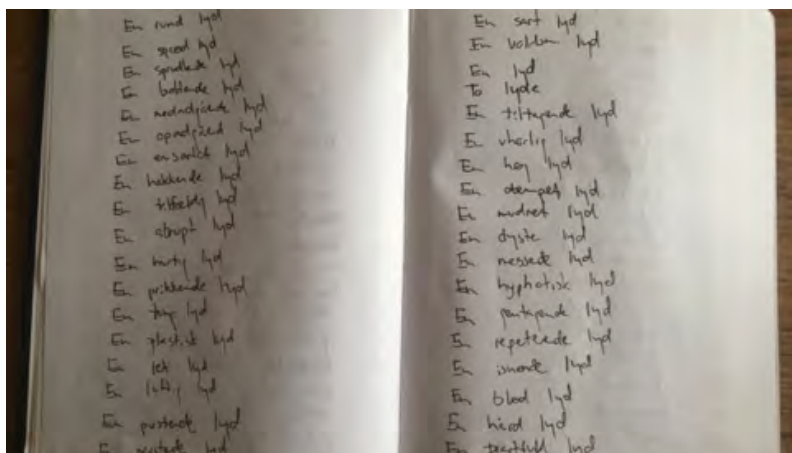 En rund lyd
En sprød lyd
En sprudlende lyd
En boblende lyd
En nedadgående lyd
En opadgående lyd
En ensartet lyd
En hakkende lyd
En tilfældig lyd
En abrupt lyd
En hurtig lyd
En prikkende lyd
En lyd
En plastisk lyd
En let lyd
En luftig lyd
En pustende lyd
En lyd
En sart lyd
En lyd
En lyd
To lyde
En lyd
En uhørlig lyd
En høj lyd
En dæmpet lyd
En lyd
En dyster lyd
En messende lyd
En hypnotisk lyd
En lyd
En repeterende lyd
En lyd
En blød lyd
En hård lyd
En lyd